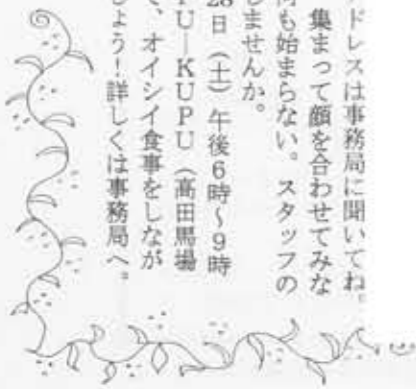 ドレスは事務局に聞いてね。
集まって顔を合わせてみな
何も始まらない。スタッフの
しませんか。
28日（土）午後6時〜9時
PU―KUPU（高田馬場
で、オイシイ食事をしなが
しょう！詳しくは事務局へ。